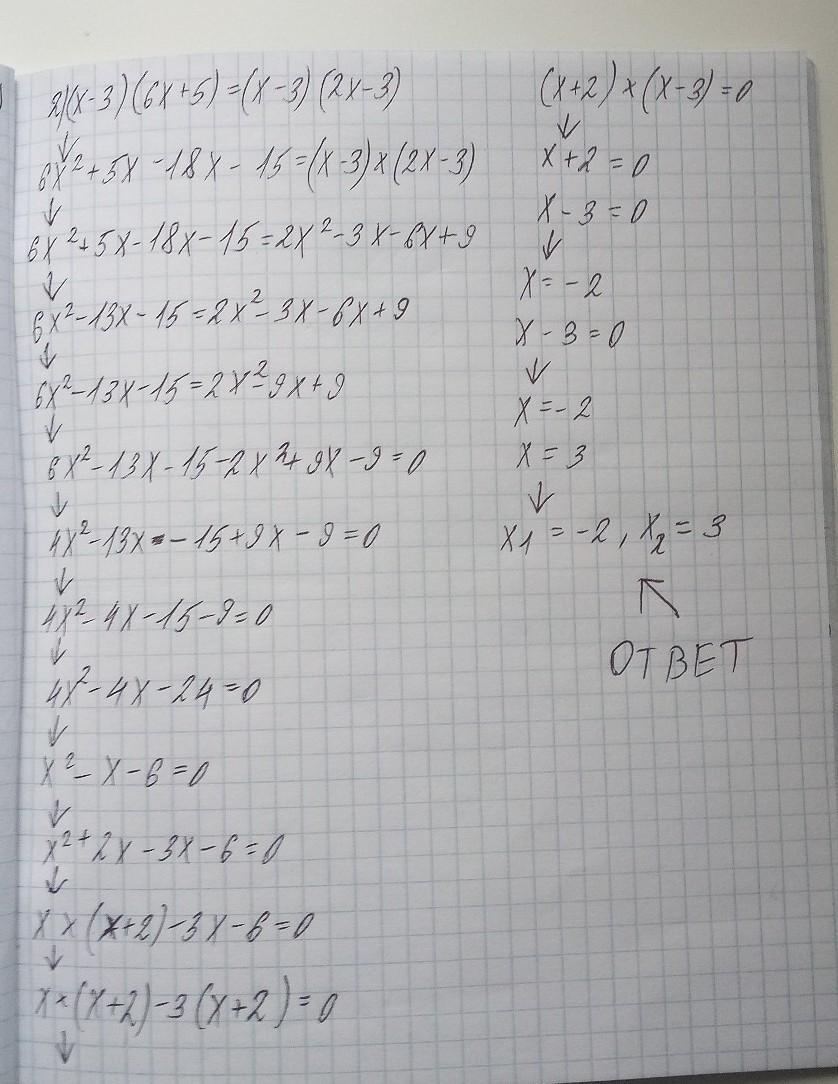 2)(x-3)(6x+5)=(x-3)(2x-3)
↓
6x²+5x-18x-15=(x-3)×(2x-3)
↓
6x²+5x-18x-15=2x²-3x-6x+9
↓
6x²-13x-15=2x²-3x-6x+9
↓
6x²-13x-15=2x²-9x+9
↓
6x²-13x-15-2x²+9x-9=0
↓
4x²-13x-15+9x-9=0
↓
4x²-4x-15-9=0
↓
4x²-4x-24=0
↓
x²-x-6=0
↓
x²+2x-3x-6=0
↓
x×(x+2)-3x-6=0
↓
x×(x+2)-3(x+2)=0
↓
(x+2)×(x-3)=0
↓
x+2=0
x-3=0
↓
x=-2
x-3=0
↓
x=-2
x=3
↓
x1=-2, x₂=3
↖
ОТВЕТ